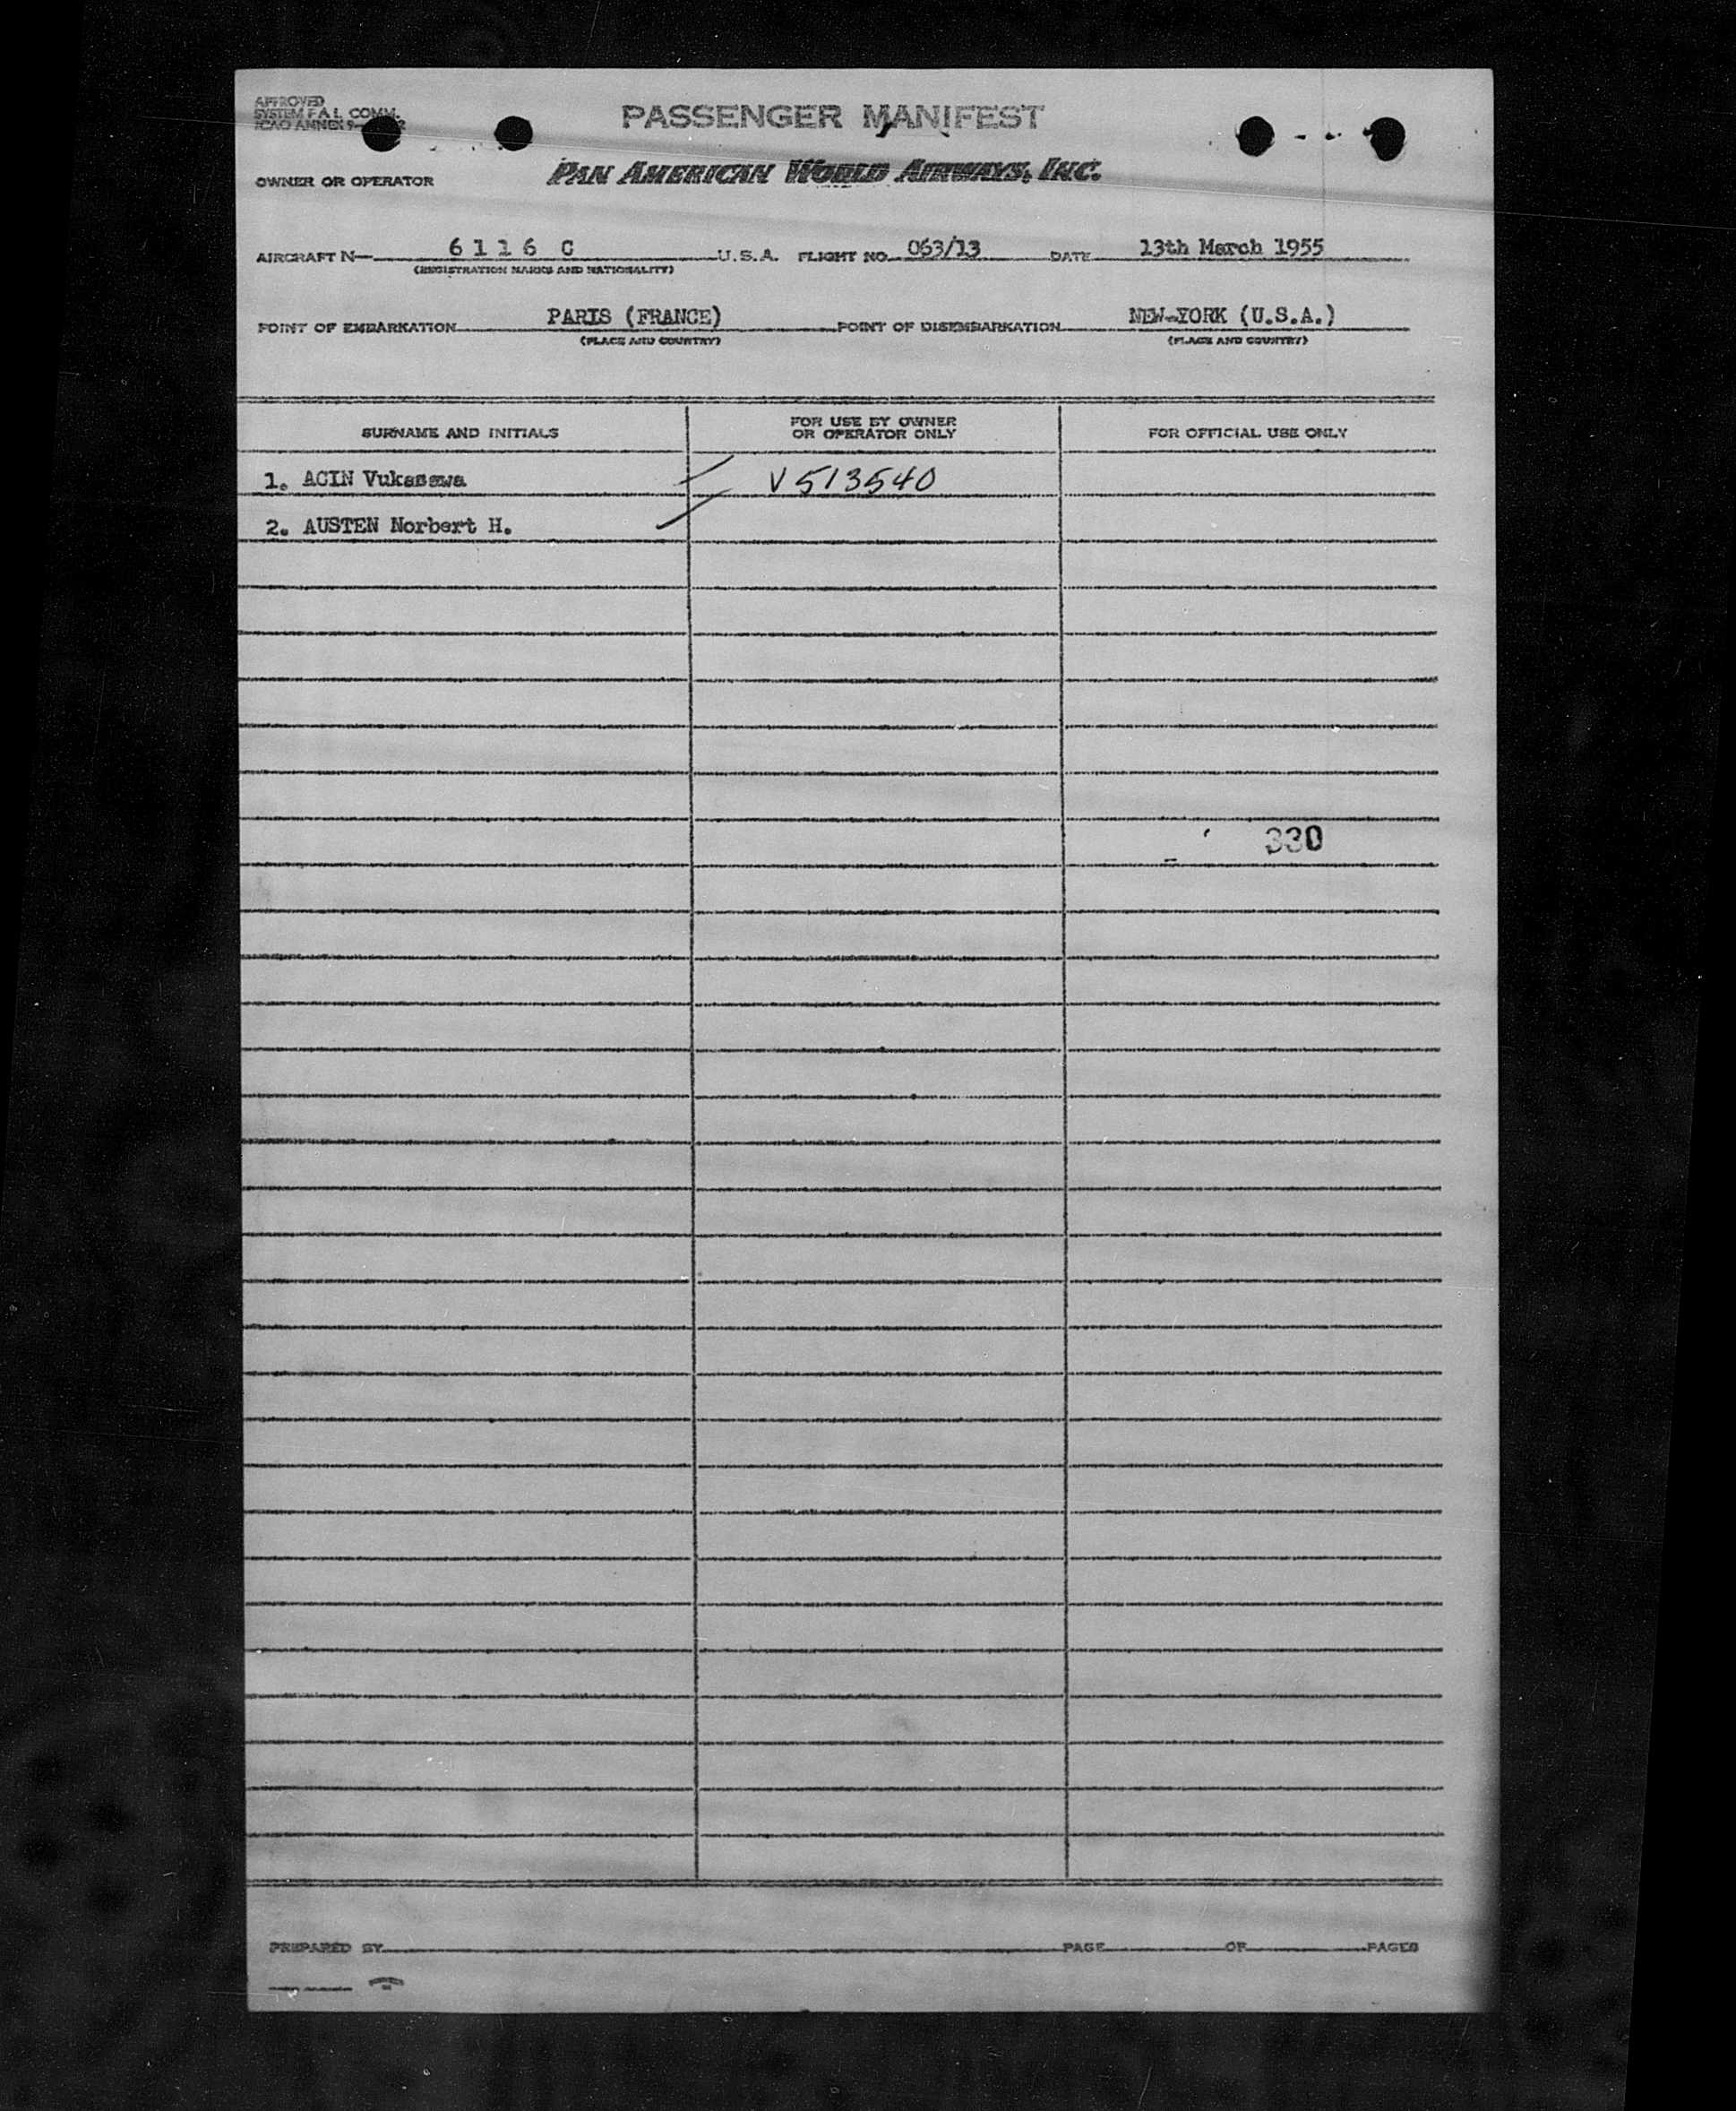 APPROVED
SYSTEM F A L COMM.
ICAO ANNEX 9-
PASSENGER MANIFEST
OWNER OR OPERATOR PAN AMERICAN WORLD AIRWAYS, INC.
AIRCRAFT N— 6 1 1 6 C U.S.A. FLIGHT NO. 063/13 DATE 13th March 1955
(REGISTRATION MARKS AND NATIONALITY)
POINT OF EMBARKATION PARIS (FRANCE) POINT OF DISEMBARKATION NEW-YORK (U.S.A.)
(PLACE AND COUNTRY) (PLACE AND COUNTRY)
SURNAME AND INITIALS FOR USE BY OWNER OR OPERATOR ONLY FOR OFFICIAL USE ONLY
1. ACIN Vukasawa V513540
2. AUSTEN Norbert H.
330
PREPARED BY PAGE OF PAGES